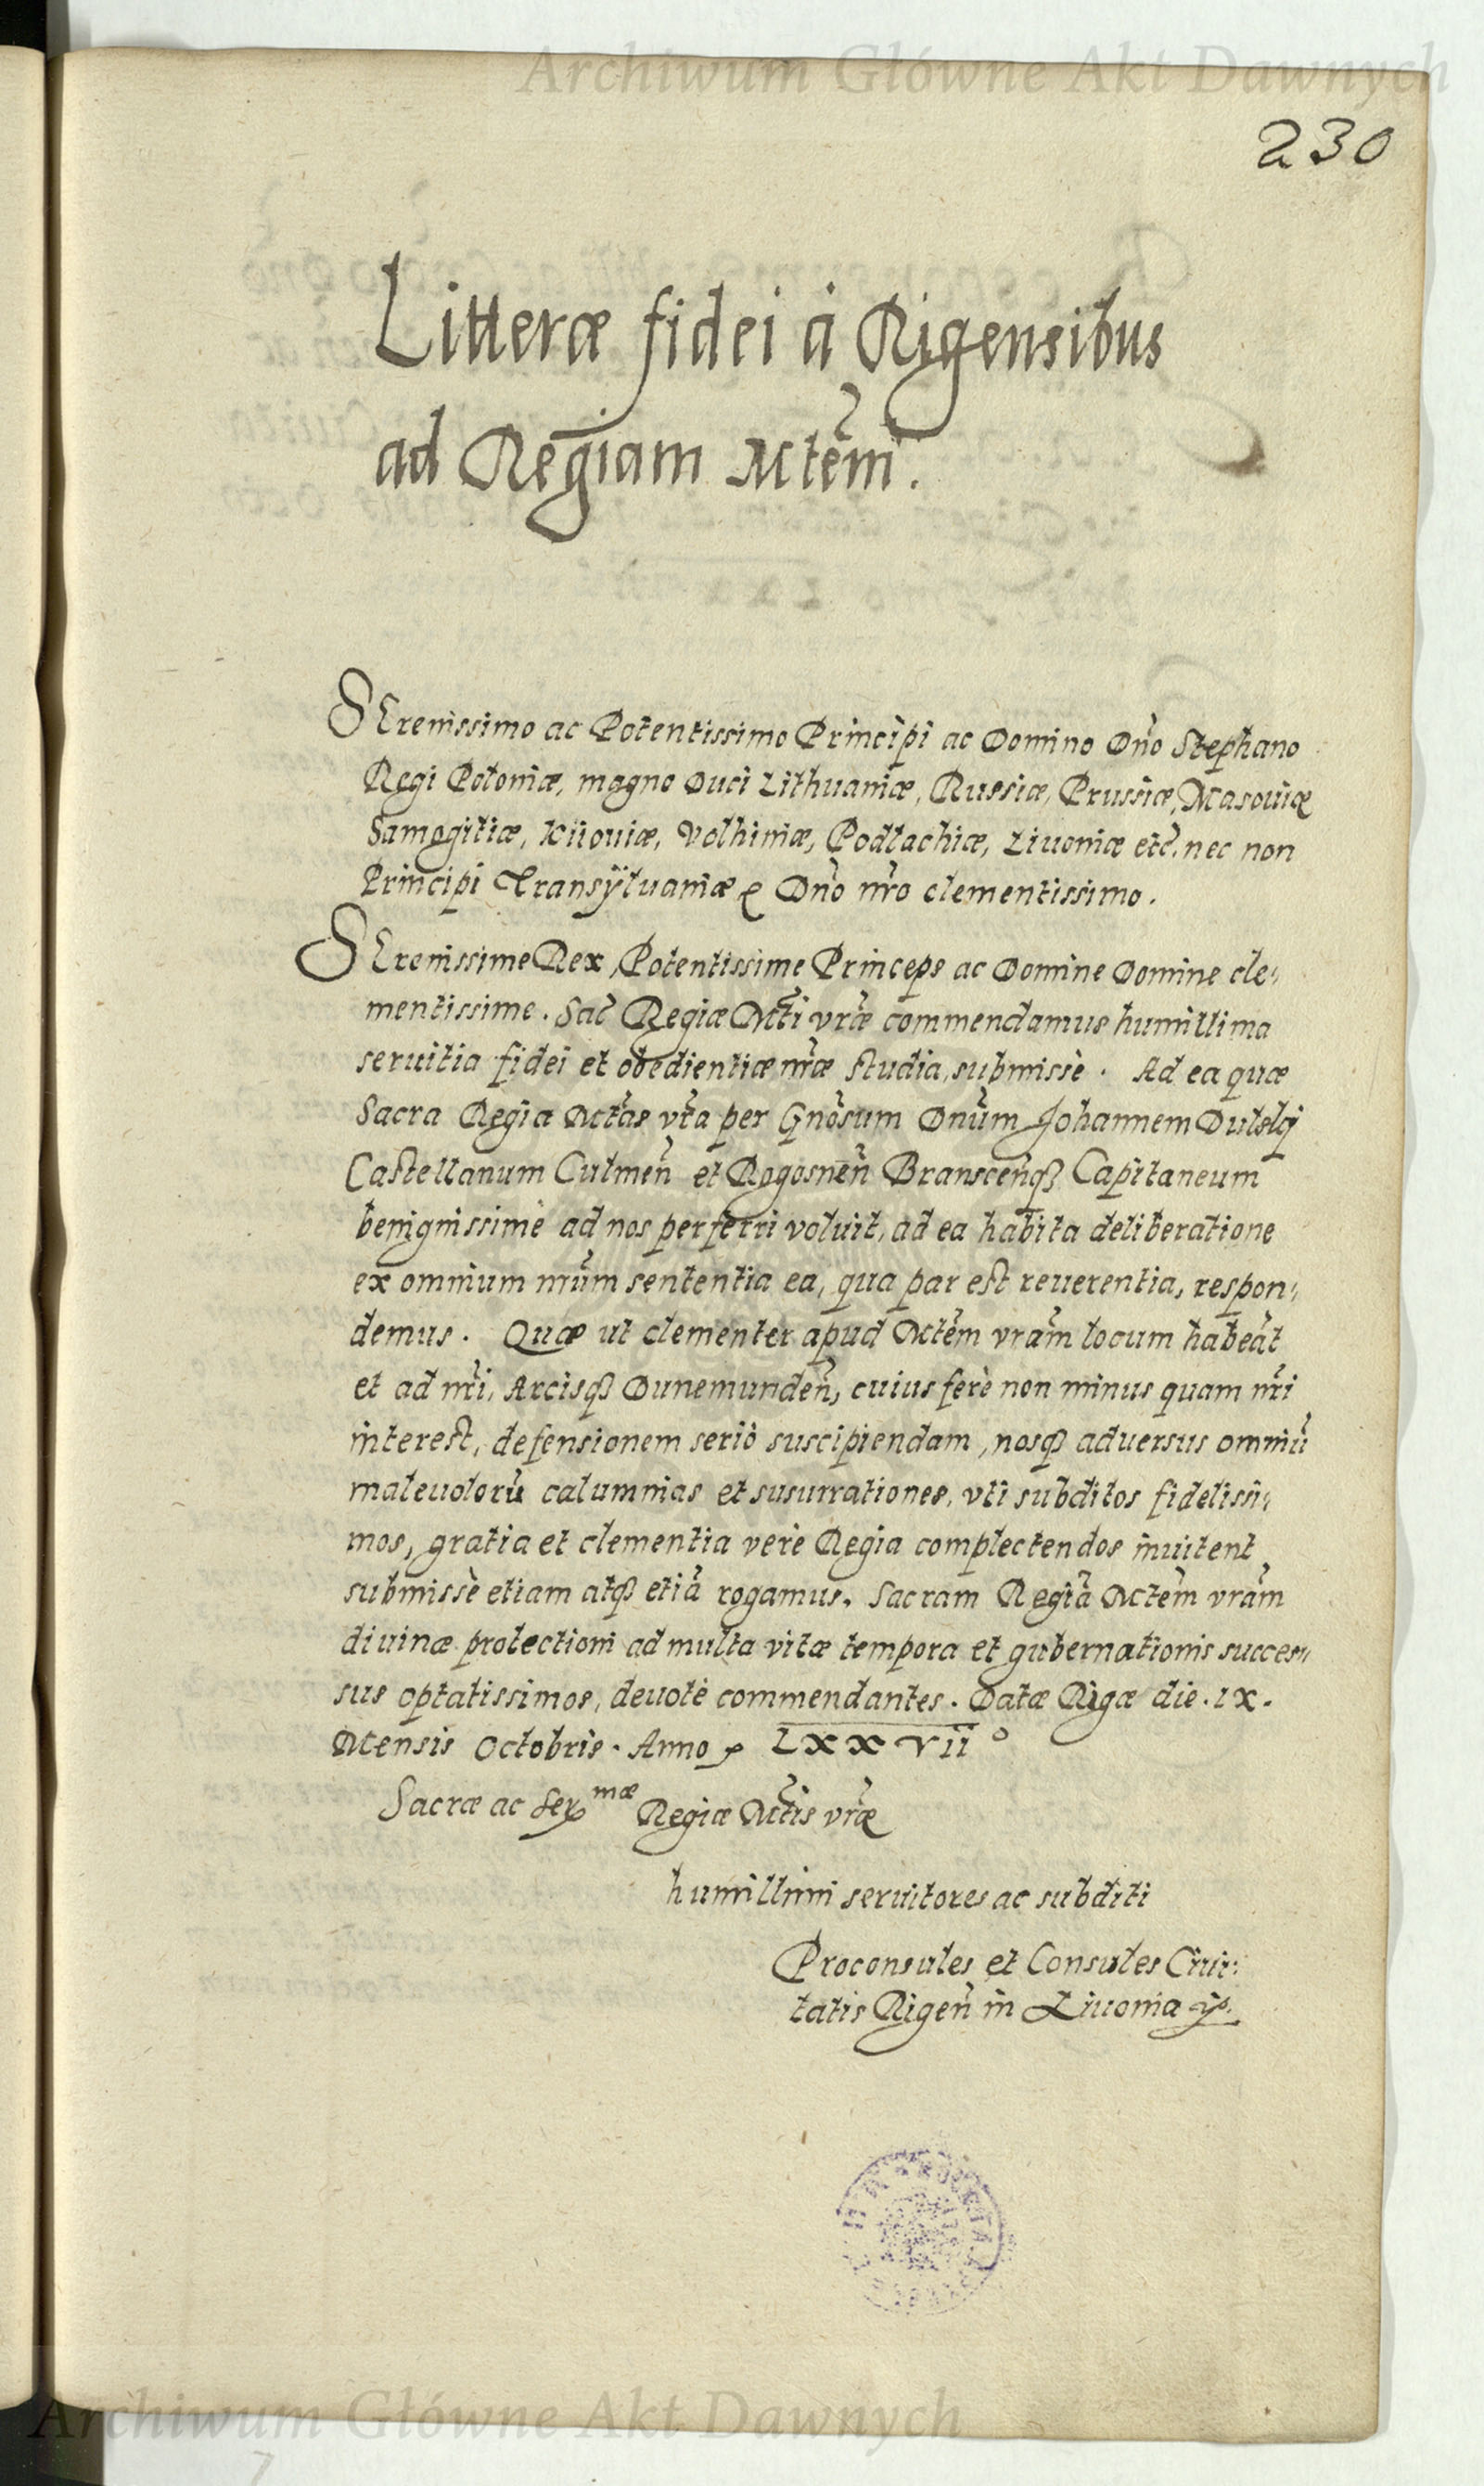 Archiwum Główne Akt Dawnych
230
Litteræ fidei à Rigensibus
ad Regiam Mtem̃.
SErenissimo ac Potentissimo Principi ac Domino Dño Stephano
Regi Poloniæ, magno Duci Lithuaniæ, Russiæ, Prussiæ, Masouiæ
Samogitiæ, Kiiouiæ, Volhiniæ, Podlachiæ, Liuoniæ etc̃. nec non
Principi Transÿluaniæ Dño nr̃o clementissimo.
SErenissime Rex, Potentissime Princeps ac Domine Domine cle,,
mentissime. Sac̃ Regiæ Mt̃i vr̃æ commendamus humillima
seruitia fidei et obedientiæ nr̃æ studia, submissè. Ad ea quæ
Sacra Regia Mtãs vr̃a per Gnõsum Dnũm Johannem Dulsky
Castellanum Culmeñ et Rogosneñ Branscenq̃ Capitaneum
benignissimè ad nos perferri voluit, ad ea habita deliberatione
ex omnium nrũm sententia ea, qua par est reuerentia, respon,,
demus. Quæ ut clementer apud Mtẽm vrãm locum habeãt
et ad nr̃i, Arcisq̃ Dunemundeñ, cuius ferè non minus quam nr̃i
interest, defensionem seriò suscipiendam, nosq̃ aduersus omniũ
maleuolorũ calumnias et susurrationes, vti subditos fidelissi,,
mos, gratia et clementia verè Regia complectendos inuitent
submissè etiam atq̃ etiã rogamus. Sacram Regiã Mtẽm vrãm
diuinæ protectioni ad multa vitæ tempora et gubernationis succes,,
sus optatissimos, deuotè commendantes. Datæ Rigæ die. ix.
Mensis Octobris. Anno LXXVII°
Sacræ ac Serᵐᵃᵉ Regiæ Mt̃is vr̃æ
humillimi seruitores ac subditi
Proconsules et Consules Ciui:
tatis Rigeñ in Liuonia
Archiwum Główne Akt Dawnych